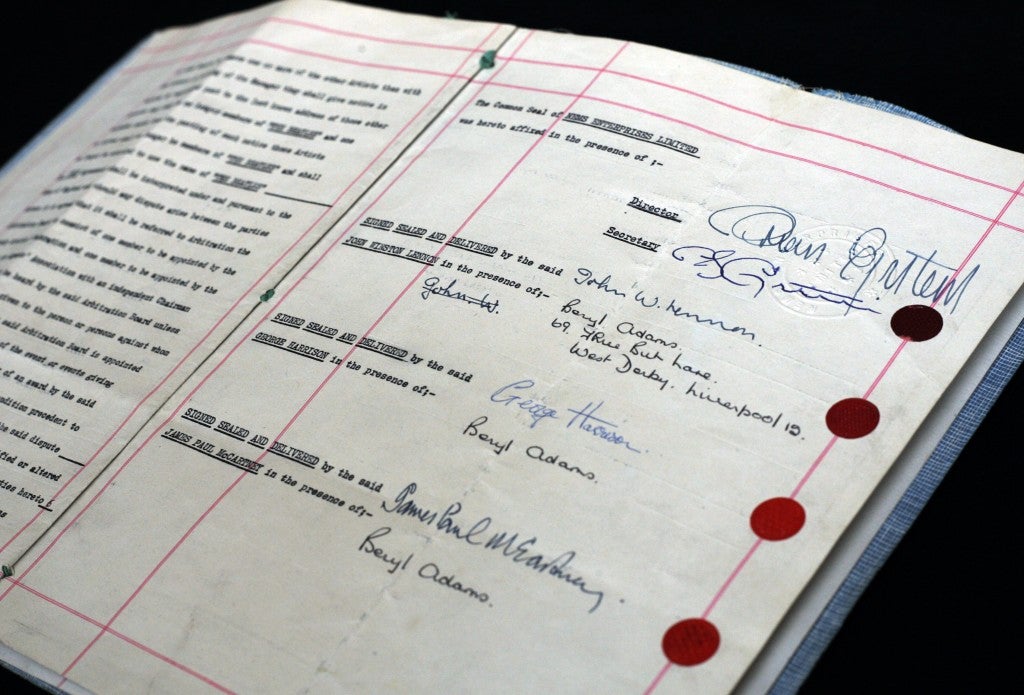 of the other Artists then with
of the Manager they shall give notice in
to the last known address of those other
members of "THE BEATLES" and one
of such notice these Artists
be members of "THE BEATLES" and shall
use the name of "THE BEATLES"
be interpreted under and pursuant to the
dispute arise between the parties
it shall be referred to Arbitration the
consist of one member to be appointed by the
and one member to be appointed by the
Association with an independent Chairman
board by the said Arbitration Board unless
to the person or persons against whom
said Arbitration Board is appointed
of the event or events giving
of an award by the said
condition precedent to
the said dispute
ified or altered
ties hereto
The Common Seal of NEMS ENTERPRISES LIMITED
was hereto affixed in the presence of ;-
Director
Brian Epstein
Secretary
SIGNED SEALED AND DELIVERED by the said
JOHN WINSTON LENNON in the presence of;-
John W. Lennon.
John W.
Beryl Adams.
69, Lane.
West Derby. Liverpool 12.
SIGNED SEALED AND DELIVERED by the said
GEORGE HARRISON in the presence of;-
George Harrison.
Beryl Adams.
SIGNED SEALED AND DELIVERED by the said
JAMES PAUL McCARTNEY in the presence of;-
James Paul McCartney.
Beryl Adams.